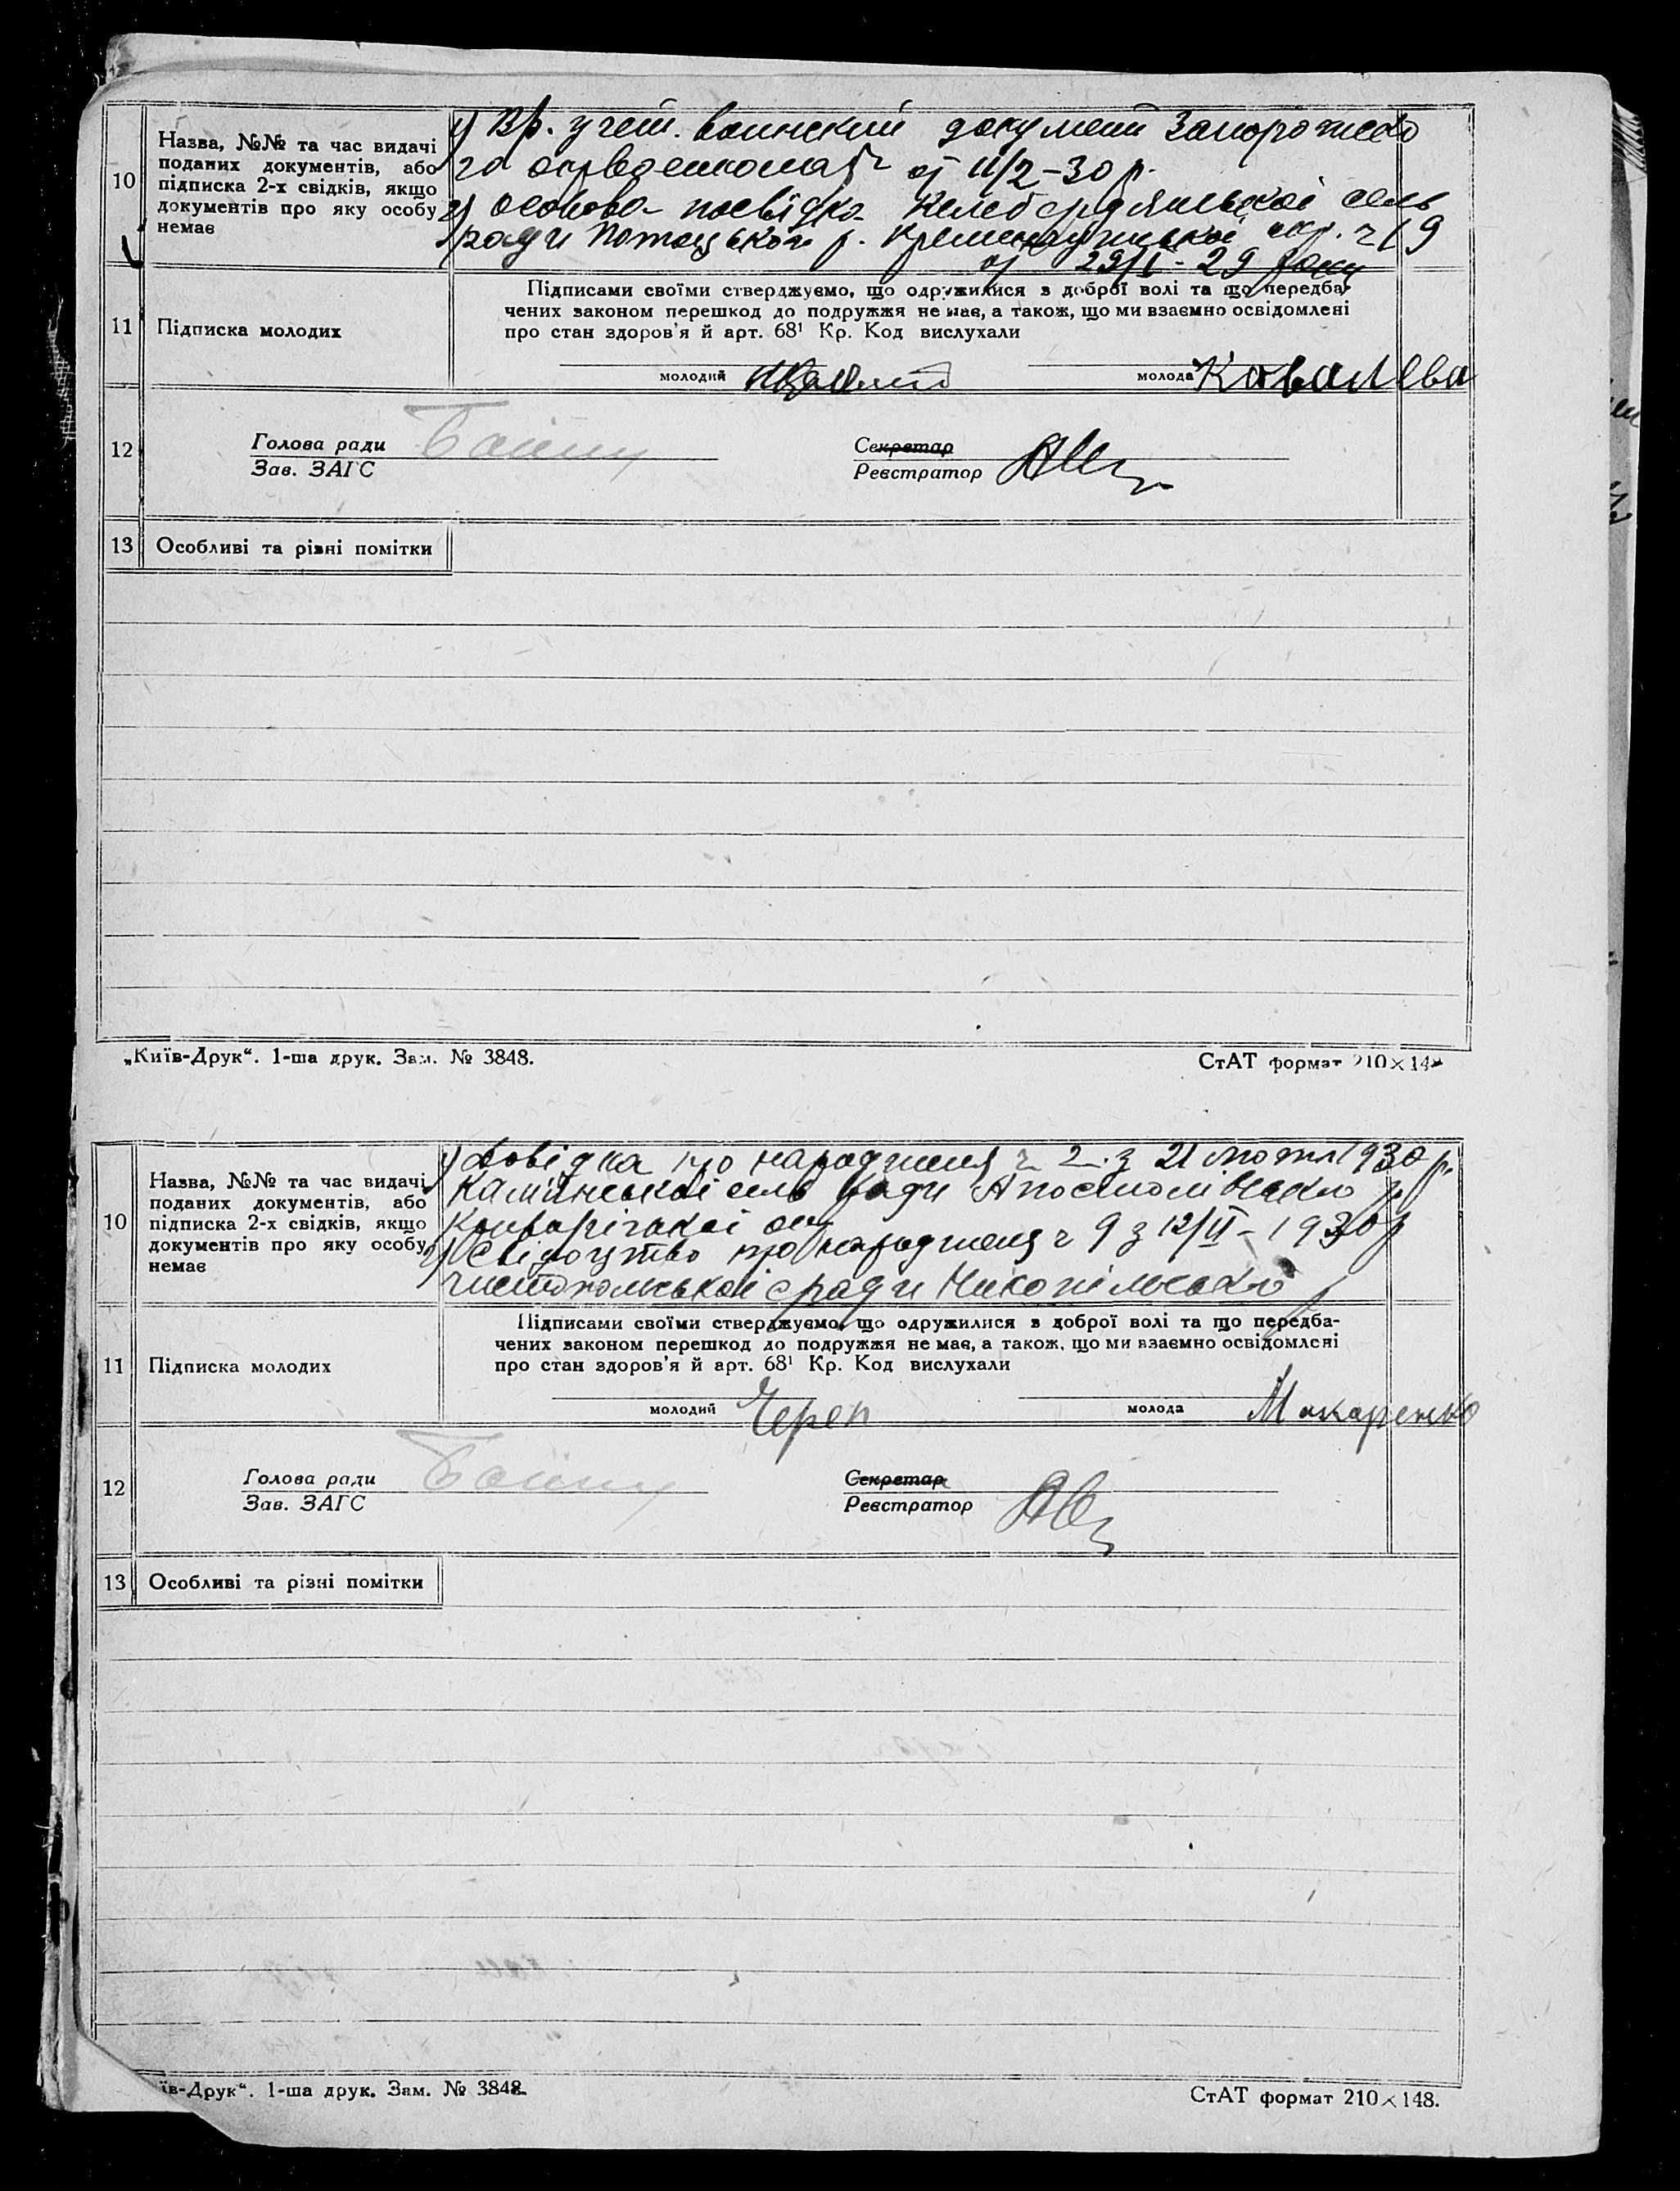 10
Назва, №№ та час видачі
поданих документів, або
підписка 2-х свідків, якщо
документів про яку особу
немає
1) Вр. учет. воинский документ Запорожско
го окрвоенкомата от 11/2-30 р.
2) особова посвідка Келебердянської сель
ради Потоцького р. Кременчуцької окр. ч 19
від 29/I - 29 року
11
Підписка молодих
Підписами своїми стверджуємо, що одружилися з доброї волі та що передба-
чених законом перешкод до подружжя не має, а також, що ми взаємно освідомлені
про стан здоров'я й арт. 68¹ Кр. Код вислухали
молодий
молода Ковалева
12
Голова ради
Зав. ЗАГС
Секретар
Реєстратор
13 Особливі та різні помітки
„Київ-Друк“. 1-ша друк. Зам. № 3848.
СтАТ формат 210×148
10
Назва, №№ та час видачі
поданих документів, або
підписка 2-х свідків, якщо
документів про яку особу
немає
1) Довідка про народження ч 2. з 21 лютня 1930 р.
Камянської сель ради Апостолівського р.
Криворізької окр
2) Свідоцтво про народження ч 9 з 12/II - 1930 р
чистопольської с ради Никопільського р
11
Підписка молодих
Підписами своїми стверджуємо, що одружилися з доброї волі та що передба-
чених законом перешкод до подружжя не має, а також, що ми взаємно освідомлені
про стан здоров'я й арт. 68¹ Кр. Код вислухали
молодий Череп
молода Макаренко
12
Голова ради
Зав. ЗАГС
Секретар
Реєстратор
13 Особливі та різні помітки
їв-Друк“. 1-ша друк. Зам. № 3848.
СтАТ формат 210×148.